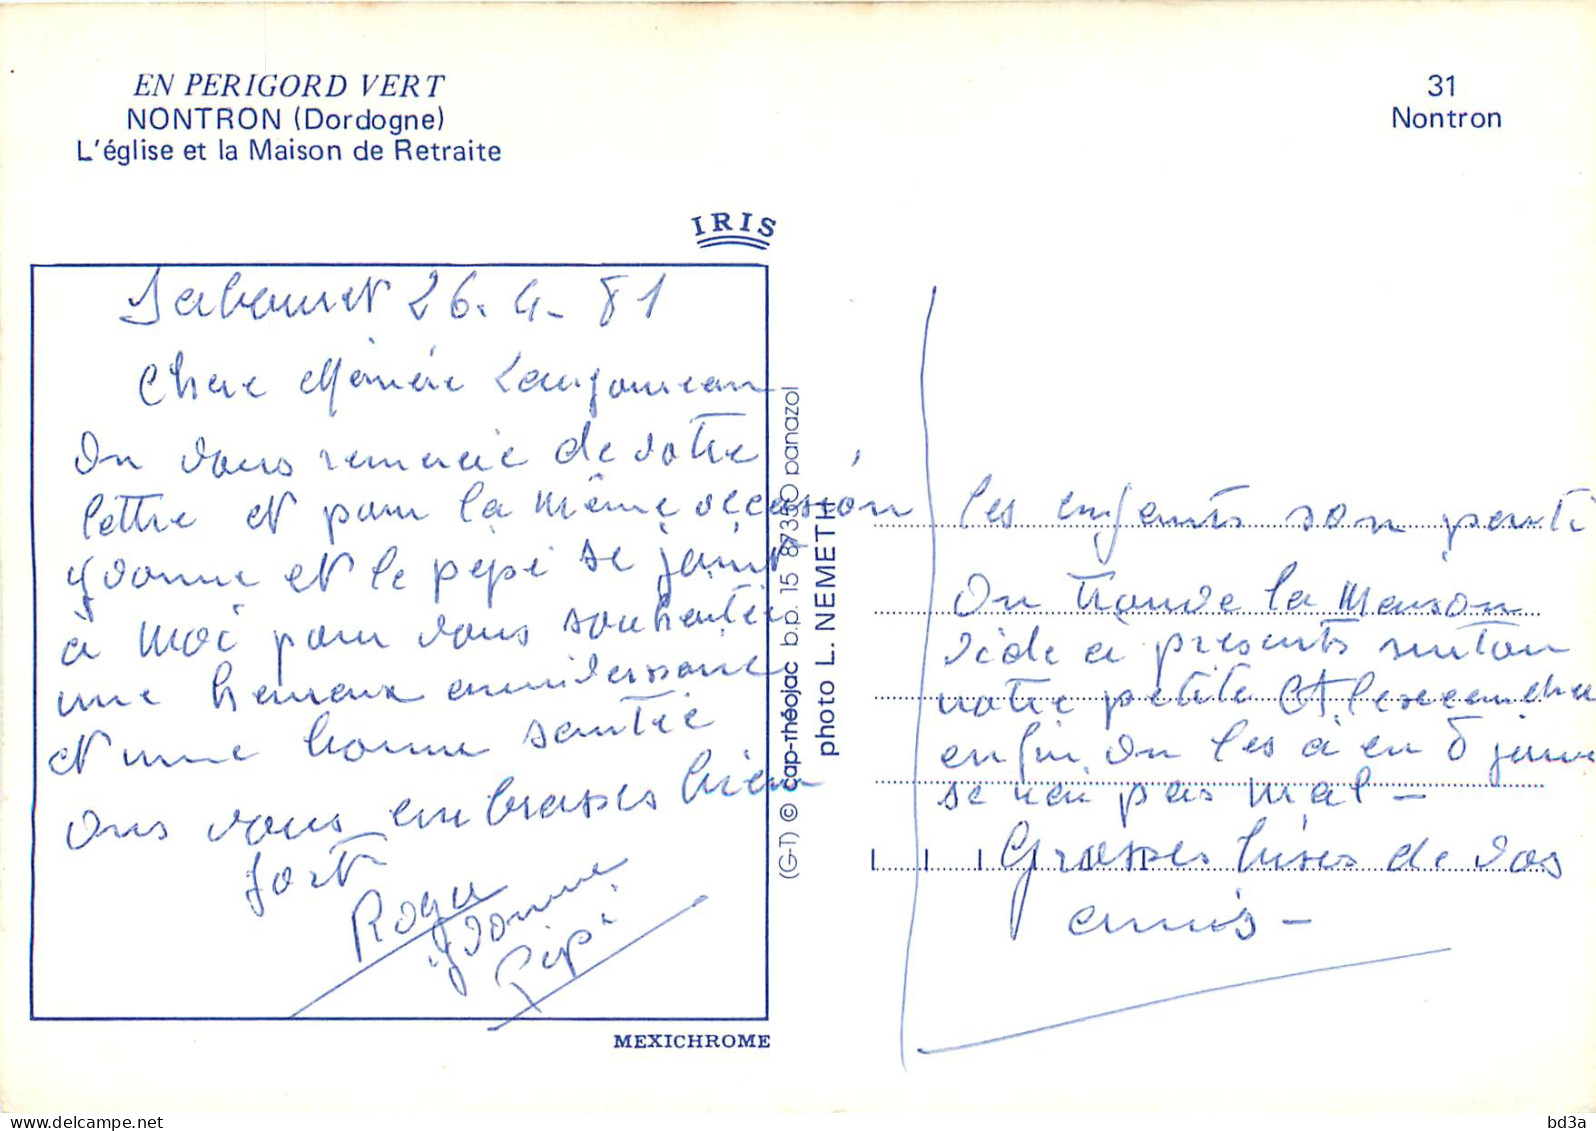 EN PERIGORD VERT
NONTRON (Dordogne)
L'église et la Maison de Retraite
31
Nontron
IRIS
26. 4 - 81
Chere Mémère
On vous remercie de votre
lettre et pour la même occasion
Yvonne et le pépé se joint
à moi pour vous souhaiter
une heureux anniversaire
et une bonne santée
Ons vous embrasses bien
fort
Roger
Yvonne
Pépé
MEXICHROME
(G-T) © cap-théojac b.p. 15 87350 panazol
photo L. NEMETH
les enfants son parti
On trouve la maison
vide a présents surtou
notre petite Alexeandra
enfin on les a en 8 jours
se nai pas mal -
Grosses bises de vos
amis -
bd3a
www.delcampe.net